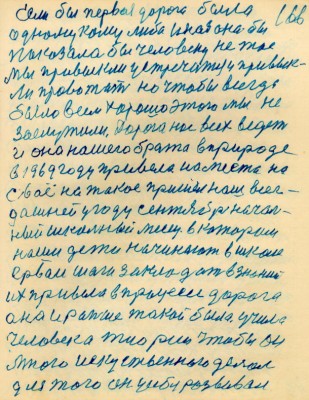 Если бы первая дорога была 166
одному кому либо и назана бы
показала бы человеку не то
мы привыкли устречать и привык-
ли работать но чтобы всегда
было всем хорошо этого мы не
заслужили. Дорога нас всех ведет
и она нашего брата в природе
в 1969 году привела на места на
своё на такое прийти наш всег-
дашней угоду сентябрь начал-
ный школьный месяц в котором
наши дети начинают в школе
первый шаги закладать в знание
их привыла в процессе дорога
она и раньше такой была учила
человека теорию чтобы он
этого искуственного делал
для этого он учобу развивал